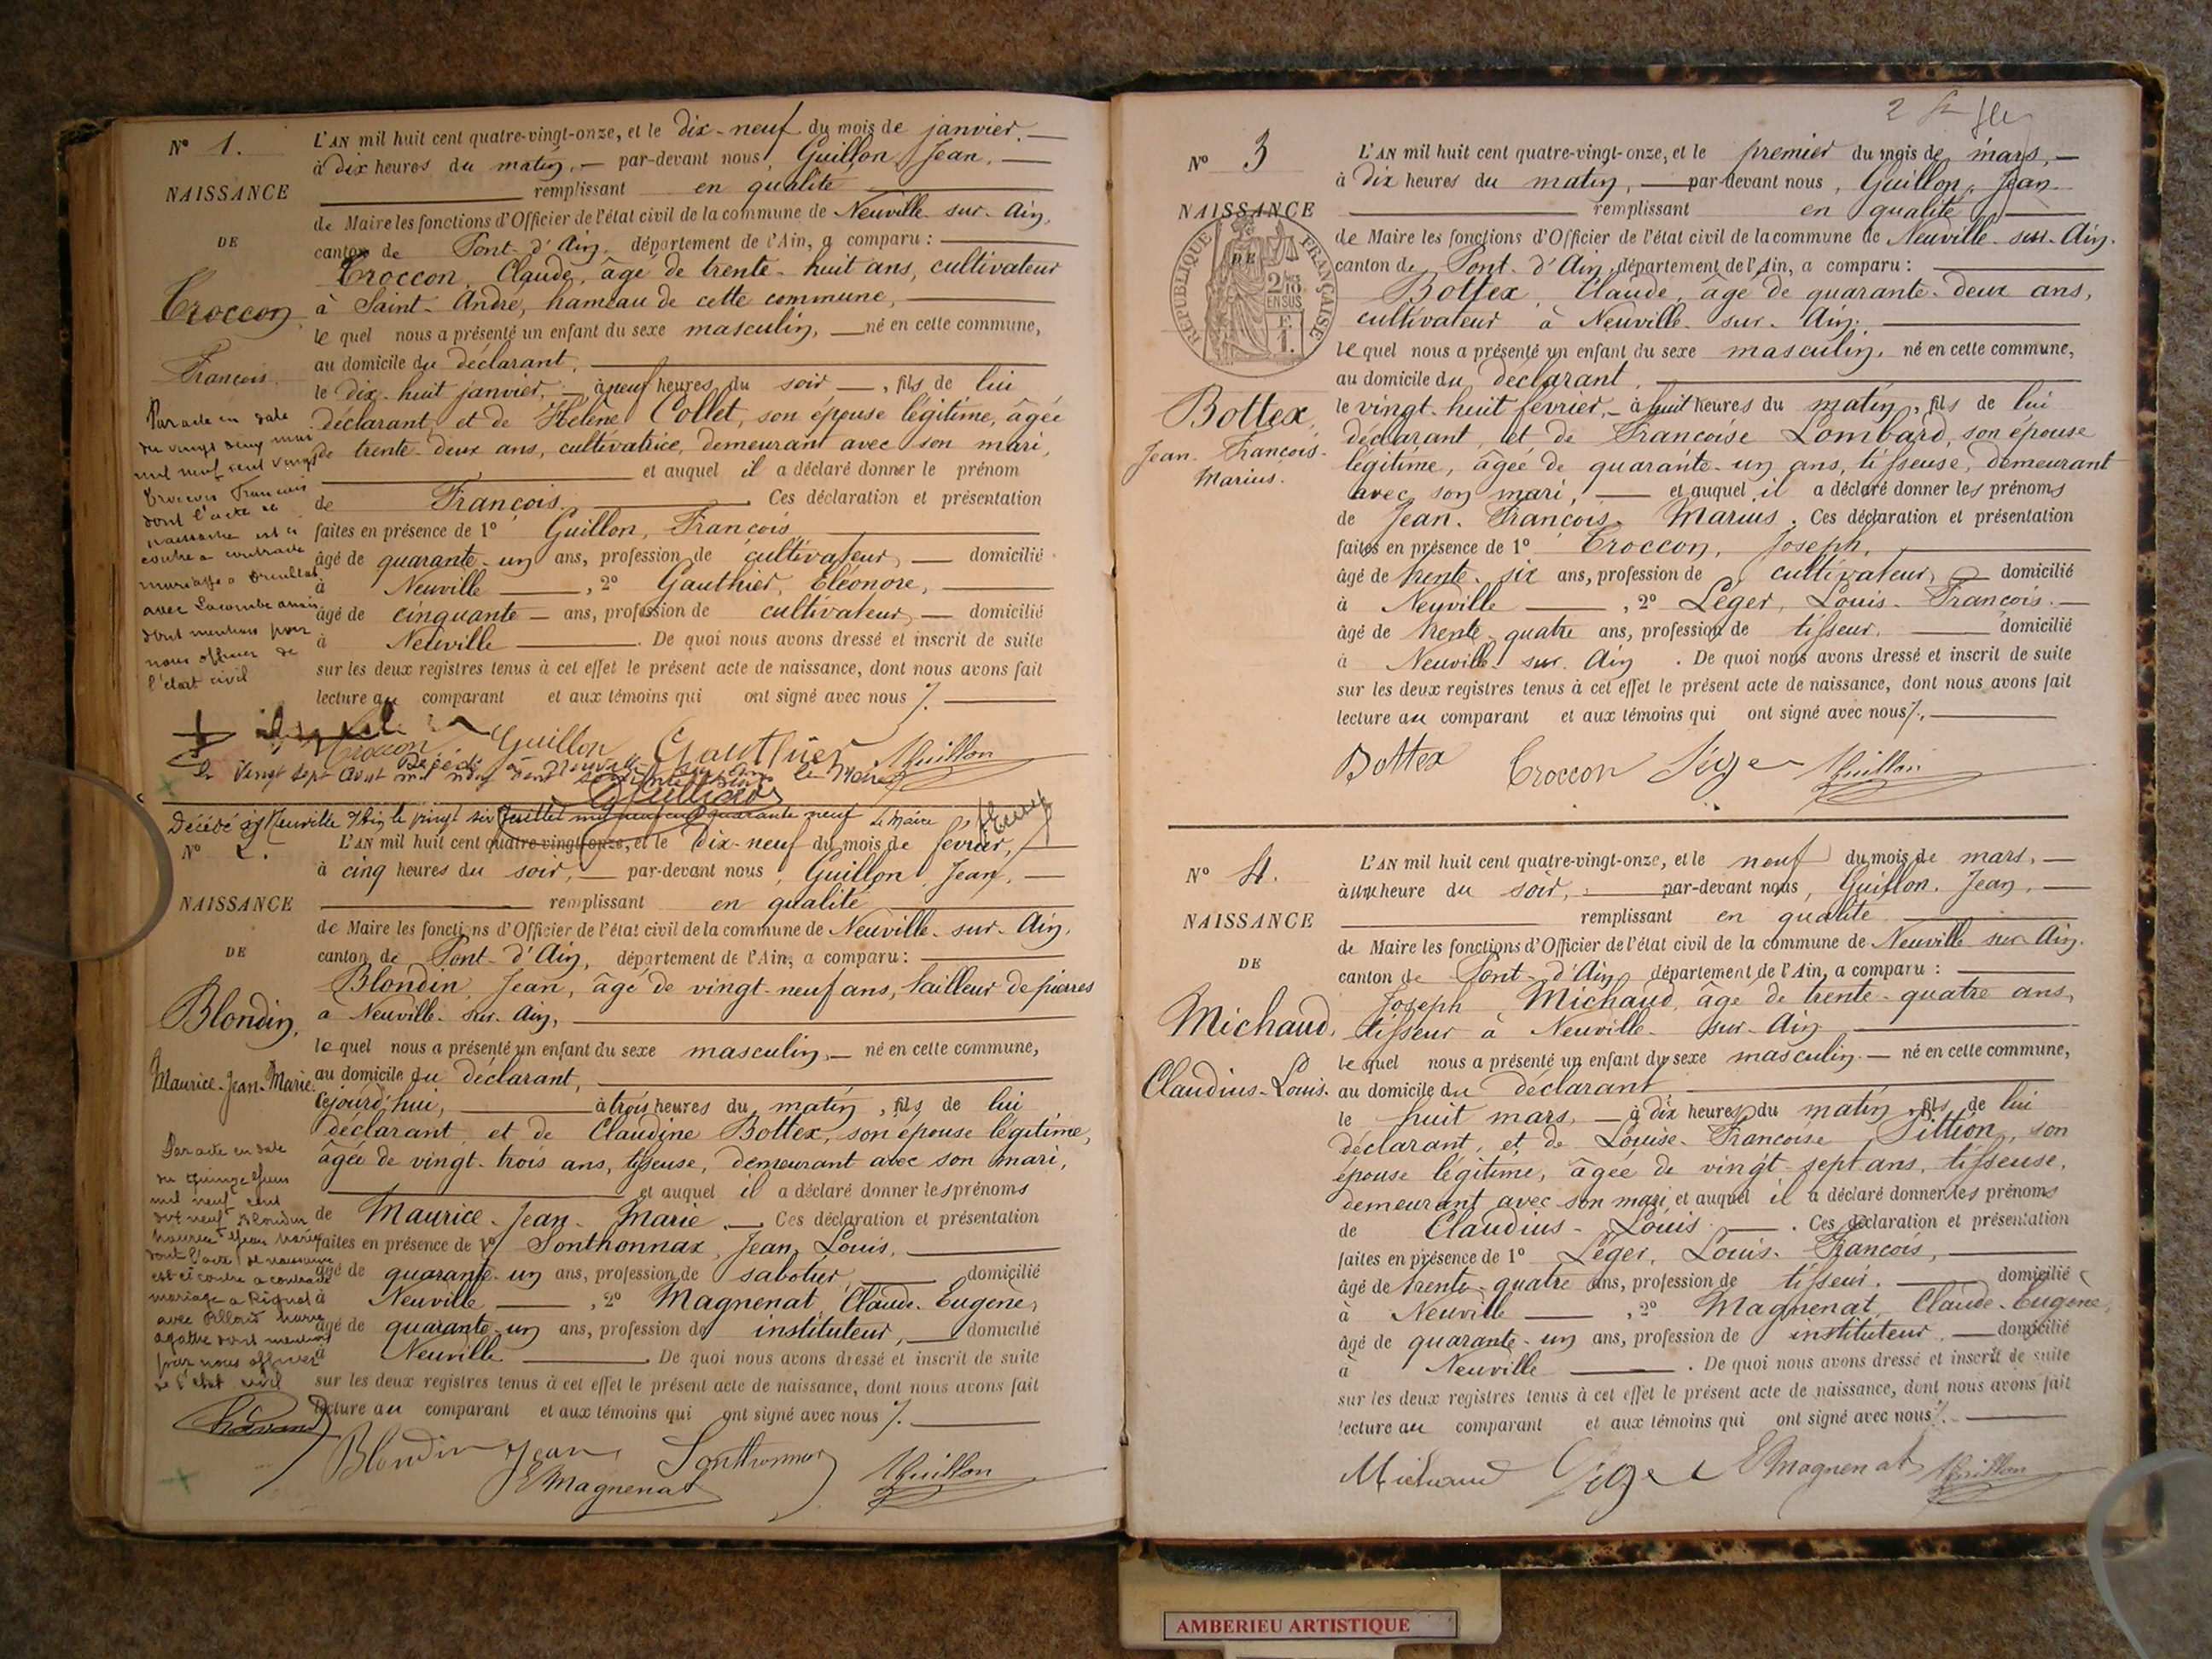 N° 1.
NAISSANCE
DE
Croccon
François.
L'AN mil huit cent quatre-vingt-onze, et le dix-neuf du mois de janvier,
à dix heures du matin, par-devant nous, Guillon, Jean,
remplissant en qualité
de Maire les fonctions d'Officier de l'état civil de la commune de Neuville-sur-Ain,
canton de Pont-d'Ain, département de l'Ain, a comparu :
Croccon, Claude, âgé de trente-huit ans, cultivateur
à Saint-André, hameau de cette commune,
lequel nous a présenté un enfant du sexe masculin, né en cette commune,
au domicile du déclarant,
le dix-huit janvier, à neuf heures du soir, fils de lui
déclarant, et de Hélène Collet, son épouse légitime, âgée
de trente-deux ans, cultivatrice, demeurant avec son mari,
et auquel il a déclaré donner le prénom
de François. Ces déclaration et présentation
faites en présence de 1° Guillon, François
âgé de quarante-un ans, profession de cultivateur, domicilié
à Neuville, 2° Gauthier, Eléonore,
âgé de cinquante ans, profession de cultivateur, domicilié
à Neuville. De quoi nous avons dressé et inscrit de suite
sur les deux registres tenus à cet effet le présent acte de naissance, dont nous avons fait
lecture au comparant et aux témoins qui ont signé avec nous ./.
Par acte en date
du vingt deux mai
mil neuf cent vingt
Croccon François
dont l'acte de
naissance est ci
contre a contracté
mariage a
avec Lacombe
dont mention par
nous officier de
l'état civil
Croccon Guillon Gauthier JGuillon
Décédé à Neuville
le vingt sept août mil neuf cent le Maire
Décédé à Neuville s/Ain le vingt six juillet mil neuf cent quarante neuf Le Maire
N° 2.
NAISSANCE
DE
Blondin,
Maurice-Jean-Marie.
L'AN mil huit cent quatre-vingt-onze, et le dix-neuf du mois de février,
à cinq heures du soir, par-devant nous, Guillon, Jean,
remplissant en qualité
de Maire les fonctions d'Officier de l'état civil de la commune de Neuville-sur-Ain,
canton de Pont-d'Ain, département de l'Ain, a comparu :
Blondin, Jean, âgé de vingt-neuf ans, tailleur de pierres
à Neuville-sur-Ain,
lequel nous a présenté un enfant du sexe masculin, né en cette commune,
au domicile du déclarant,
cejourd'hui, à trois heures du matin, fils de lui
déclarant, et de Claudine Bottex, son épouse légitime,
âgée de vingt-trois ans, tisseuse, demeurant avec son mari,
et auquel il a déclaré donner les prénoms
de Maurice-Jean-Marie. Ces déclaration et présentation
faites en présence de 1° Sonthonnax, Jean, Louis,
âgé de quarante-un ans, profession de sabotier, domicilié
à Neuville, 2° Magnenat, Claude-Eugène,
âgé de quarante-un ans, profession de instituteur, domicilié
à Neuville. De quoi nous avons dressé et inscrit de suite
sur les deux registres tenus à cet effet le présent acte de naissance, dont nous avons fait
lecture au comparant et aux témoins qui ont signé avec nous ./.
Par acte en date
du quinze juin
mil neuf cent
dix neuf Blondin
Maurice Jean Marie
dont l'acte de naissance
est ci contre a contracté
mariage a
avec Marie
Agathe dont mention
par nous officier
de l'état civil
Blondin Jean Sonthonnax
EMagnenat JGuillon
2
N° 3
NAISSANCE
DE
RÉPUBLIQUE FRANÇAISE
2/10 EN SUS
F. 1.
Bottex,
Jean-François-
Marius.
L'AN mil huit cent quatre-vingt-onze, et le premier du mois de mars,
à dix heures du matin, par-devant nous, Guillon, Jean
remplissant en qualité
de Maire les fonctions d'Officier de l'état civil de la commune de Neuville-sur-Ain.
canton de Pont-d'Ain, département de l'Ain, a comparu :
Bottex, Claude, âgé de quarante-deux ans,
cultivateur à Neuville-sur-Ain,
lequel nous a présenté un enfant du sexe masculin, né en cette commune,
au domicile du déclarant,
le vingt-huit février, à huit heures du matin, fils de lui
déclarant, et de Françoise Lombard, son épouse
légitime, âgée de quarante-un ans, tisseuse, demeurant
avec son mari, et auquel il a déclaré donner les prénoms
de Jean-François-Marius. Ces déclaration et présentation
faites en présence de 1° Croccon, Joseph,
âgé de trente-six ans, profession de cultivateur, domicilié
à Neuville, 2° Léger, Louis-François.
âgé de trente-quatre ans, profession de tisseur, domicilié
à Neuville-sur-Ain. De quoi nous avons dressé et inscrit de suite
sur les deux registres tenus à cet effet le présent acte de naissance, dont nous avons fait
lecture au comparant et aux témoins qui ont signé avec nous ./.
Bottex Croccon Léger JGuillon
N° 4.
NAISSANCE
DE
Michaud,
Claudius-Louis.
L'AN mil huit cent quatre-vingt-onze, et le neuf du mois de mars,
à une heure du soir, par-devant nous, Guillon, Jean,
remplissant en qualité
de Maire les fonctions d'Officier de l'état civil de la commune de Neuville-sur-Ain.
canton de Pont-d'Ain, département de l'Ain, a comparu :
Joseph Michaud, âgé de trente-quatre ans,
tisseur à Neuville-sur-Ain
lequel nous a présenté un enfant du sexe masculin. né en cette commune,
au domicile du déclarant,
le huit mars, à dix heures du matin, fils de lui
déclarant, et de Louise-Françoise Pittion, son
épouse légitime, âgée de vingt-sept ans, tisseuse,
demeurant avec son mari, et auquel il a déclaré donner les prénoms
de Claudius-Louis. Ces déclaration et présentation
faites en présence de 1° Léger, Louis-François,
âgé de trente-quatre ans, profession de tisseur, domicilié
à Neuville, 2° Magnenat, Claude-Eugène,
âgé de quarante-un ans, profession de instituteur, domicilié
à Neuville. De quoi nous avons dressé et inscrit de suite
sur les deux registres tenus à cet effet le présent acte de naissance, dont nous avons fait
lecture au comparant et aux témoins qui ont signé avec nous ./.
Michaud Léger EMagnenat JGuillon
AMBERIEU ARTISTIQUE